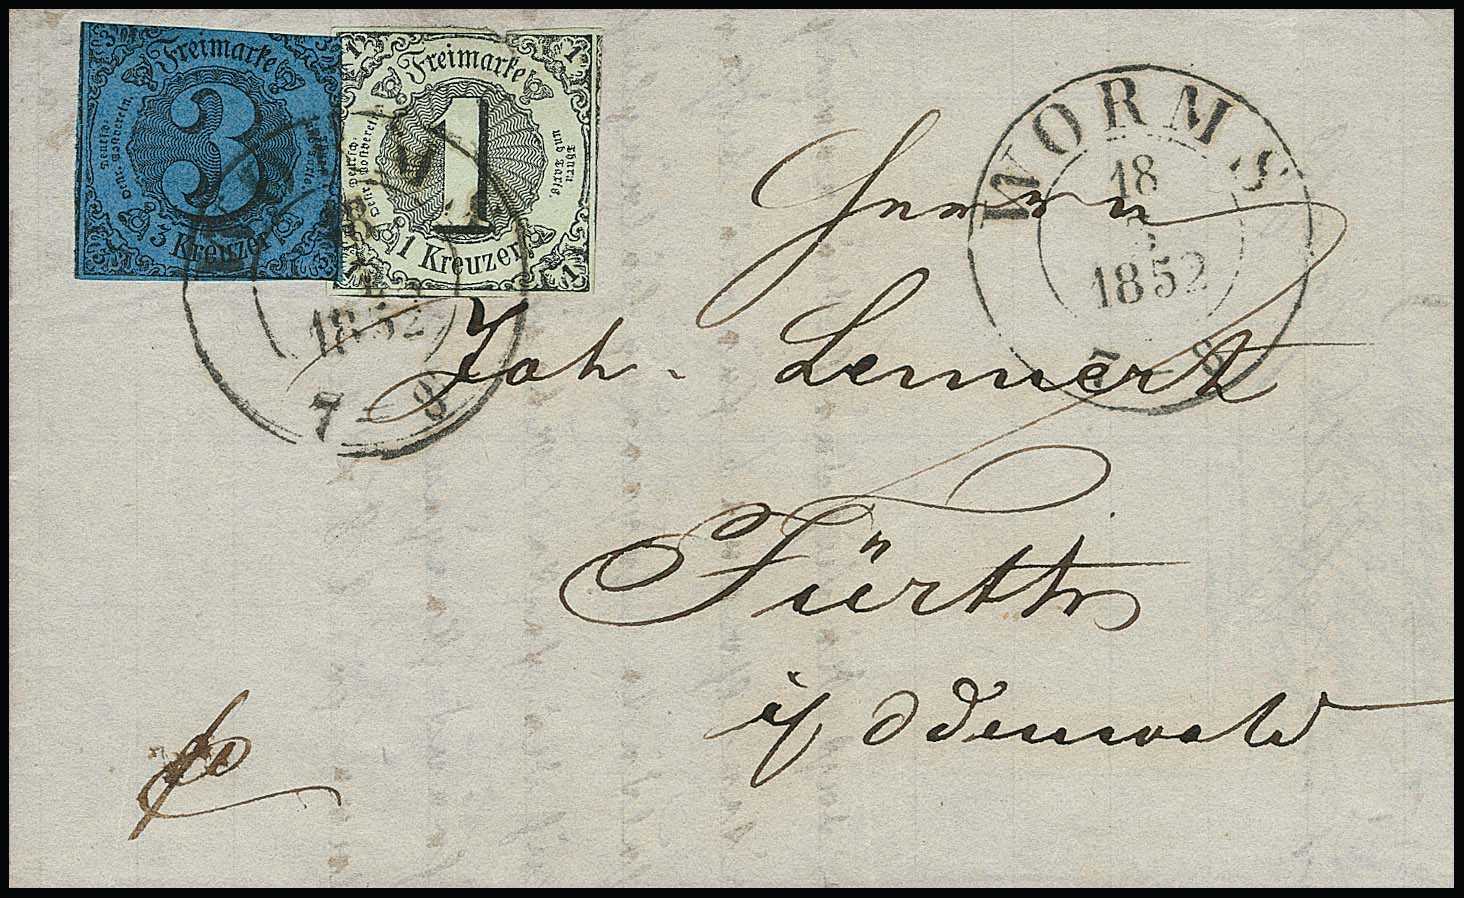 Freimarke
3
3 Kreuzer
Deutsch-
Oestr. Postverein.
Freimarke
1
1 Kreuzer
Deutsch-
Oestr. Postverein.
Thurn
und Taxis.
1
1
1
WORMS
18
1852
7 - 8
1852
7 - 8
Herrn
Joh. Lennert
Fürth
i/Odenwald